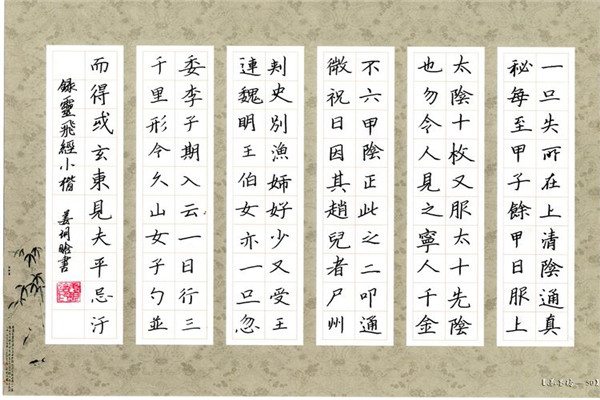 一旦失所在上清陰通真
秘每至甲子餘甲日服上
太陰十枚又服太十先陰
也勿令人見之寧人千金
不六甲陰正此之二叩通
微祝日因其趙兒者尸州
刾史別漁姊好少又受王
連魏明王伯女亦一旦忽
委李子期入云一日行三
千里形令久山女子勺並
而得或玄東見夫平忌汙
錄靈飛經小楷 姜 書